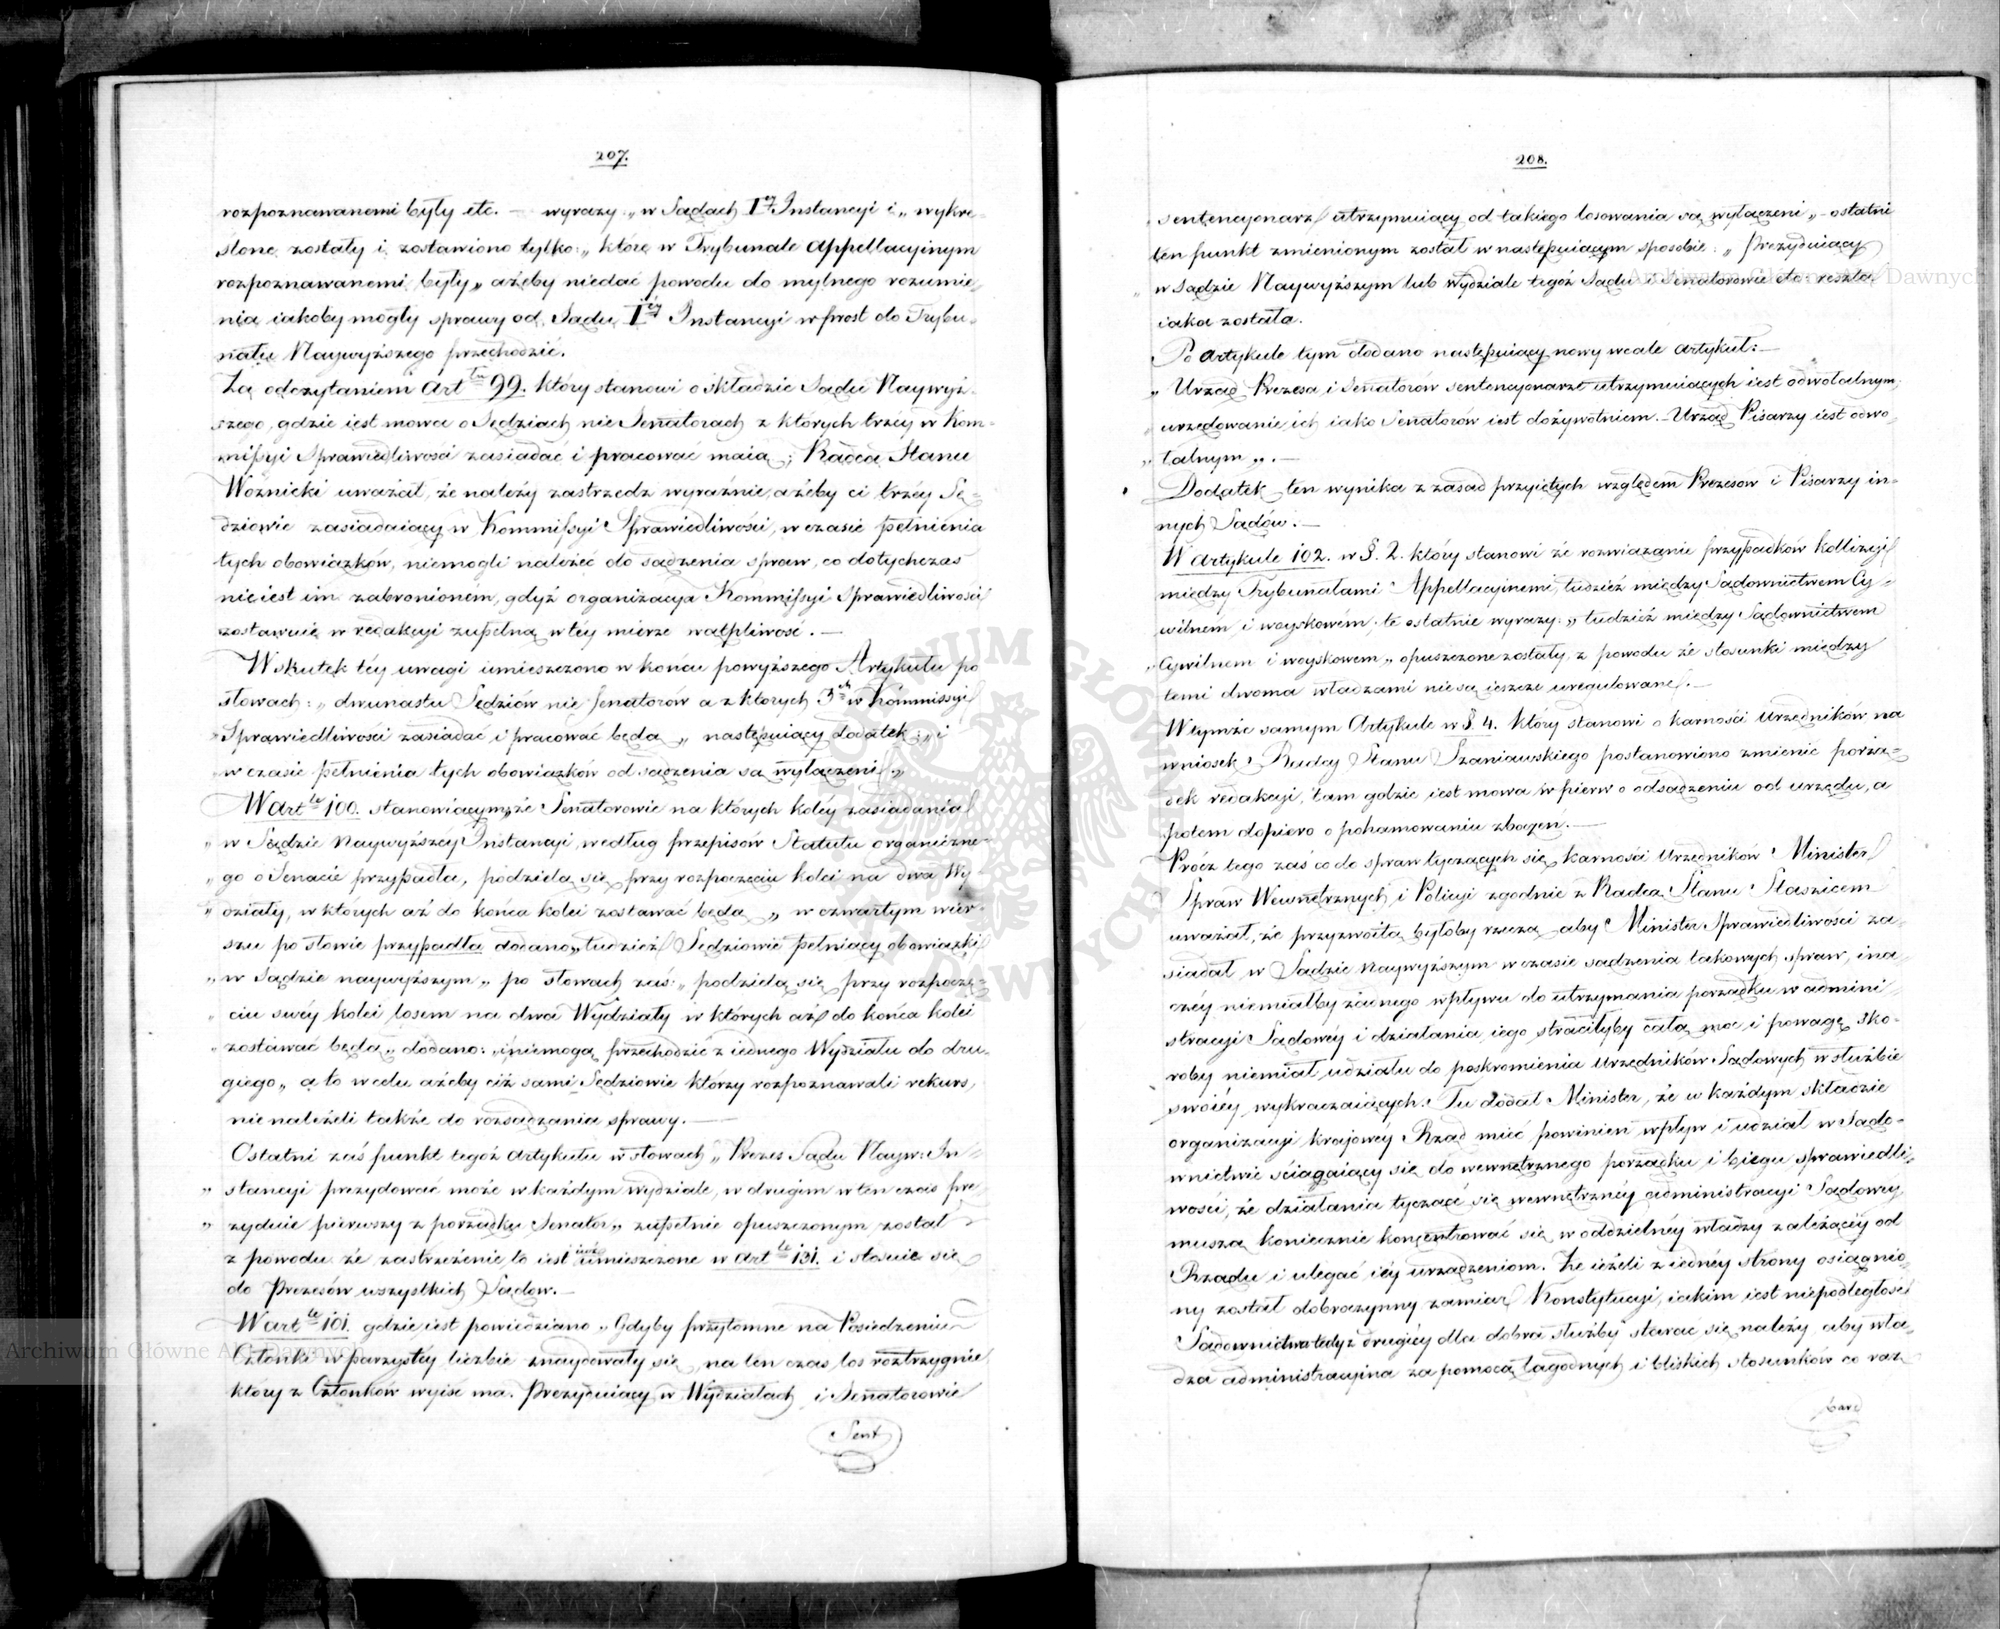 207.
rozpoznawanemi były etc. — wyrazy „ w Sądach I éy Instancyi i „ wykre-
slone zostały i zostawiono tylko: „ które w Trybunale Appellacyinym
rozpoznawanemi były „ ażeby niedać powodu do mylnego rozumie-
nia iakoby mogły sprawy od Sądu I éy Instancyi wprost do Trybu-
nału Naywyższego przechodzić.
Za odczytaniem Art łu 99. który stanowi o składzie Sądu Naywyż-
szego, gdzie iest mowa o Sędziach nie Senatorach z których trzéy w Kom-
missyi Sprawiedliwości zasiadać i pracować maią; Radca Stanu
Woźnicki uważał, że należy zastrzedz wyraźnie, ażeby ci trzéy Sę-
dziowie zasiadaiący w Kommissyi Sprawiedliwości, w czasie pełnienia
tych obowiązków, niemogli należéć do sądzenia spraw, co dotychczas
nie iest im zabronionem, gdyż organizacya Kommissyi Sprawiedliwości
zostawuie w redakcyi zupełną w téy mierze wątpliwość. —
W skutek téy uwagi umieszczono w końcu powyższego Artykułu po
słowach: „ dwunastu Sędziów nie Senatorów a z ktorych 3 ch w Kommissyi
„ Sprawiedliwości zasiadać i pracować będą „ następuiący dodatek: „ i
„ w czasie pełnienia tych obowiązków od sądzenia są wyłączeni „
W art le 100. stanowiącym, że Senatorowie na których koléy zasiadania
„ w Sądzie Naywyższéy Instancyi, według przepisów Statutu organiczne-
„ go o Senacie przypadła, podzielą się przy rozpoczęciu kolei na dwa Wy-
„ działy, w których aż do końca kolei zostawać będą „ w czwartym wier-
szu po słowie przypadła dodano „ tudzież Sędziowie pełniący obowiązki
„ w Sądzie naywyższym „ po słowach zaś: „ podzielą się przy rozpoczę-
„ ciu swéy kolei losem na dwa Wydziały w których aż do końca kolei
„ zostawać będą „ dodano: „ i niemogą przechodzić z iednego Wydziału do dru-
giego „ a to w celu ażeby ciż sami Sędziowie którzy rozpoznawali rekurs,
nie należeli także do rozsądzania sprawy. —
Ostatni zaś punkt tegoż Artykułu w słowach „ Prezes Sądu Nayw: In-
„ stancyi prezydować może w każdym wydziale, w drugim w ten czas pre-
„ zyduie pierwszy z porządku Senator „ zupełnie opuszczonym został
z powodu że zastrzeżenie to iest iuż umieszczone w art le 131. i stosuie się
do Prezesów wszystkich Sądow. —
W art le 101. gdzie iest powiedziano „ Gdyby przytomne na Posiedzeniu
Członki w parzystéy liczbie znaydowały się, na ten czas los roztrzygnie
który z Członków wyiść ma. Prezyduiący w Wydziałach i Senatorowie
Sent
208.
„ sentencyonarz utrzymuiący od takiego losowania są wyłączeni „ – ostatni
ten punkt zmienionym został w następuiącym sposobie: „ Prezyduiący
„ w Sądzie Naywyższym lub wydziale tegoż Sądu i Senatorowie etc: reszta
iaka została.
Po Artykule tym dodano następuiący nowy wcale Artykuł: —
„ Urząd Prezesa i Senatorów sentencyonarze utrzymuiących iest odwołalnym;
„ urzędowanie ich iako Senatorów iest dożywotniem. – Urząd Pisarzy iest odwo-
„ łalnym „. —
Dodatek ten wynika z zasad przyiętych względem Prezesow i Pisarzy in-
nych Sądów. —
W Artykule 102. w §. 2. który stanowi że rozwiązanie przypadków kollizyi
między Trybunałami Appellacyinemi, tudzież między Sądownictwem Cy-
wilnem i woyskowém; te ostatnie wyrazy: „ tudzież między Sądownictwem
„ Cywilnem i woyskowem „ opuszczone zostały, z powodu że stosunki między
temi dwoma władzami nie są ieszcze uregulowane. —
W tymże samym Artykule w §. 4. który stanowi o karności Urzędników na
wniosek Radcy Stanu Szaniawskiego postanowiono zmienić porzą-
dek redakcyi, tam gdzie iest mowa w pierw o odsądzeniu od urzędu, a
potem dopiero o pohamowaniu zboczeń. —
Prócz tego zaś co do spraw tyczących się karności Urzędników Minister
Spraw Wewnętrznych i Policyi zgodnie z Radcą Stanu Staszicem
uważał, że przyzwoitą byłoby rzeczą aby Minister Sprawiedliwości za-
siadał w Sądzie naywyższym w czasie sądzenia takowych spraw, ina-
czéy niemiałby żadnego wpływu do utrzymania porządku w admini-
stracyi Sądowéy i działania iego straciłyby całą moc i powagę sko-
roby niemiał udziału do poskromienia Urzędników Sądowych w służbie
swoiéy wykraczaiących. Tu dodał Minister, że w każdym składzie
organizacyi krajowéy Rząd mieć powinien wpływ i udział w Sądo-
wnictwie ściągaiący się do wewnętrznego porządku i biegu sprawiedli-
wości, że działania tyczące się wewnętrznéy administracyi Sądowéy
muszą koniecznie koncentrować się w oddzielnéy władzy zależącéy od
Rządu i ulegać iéy urządzeniom. Że ieżeli z iednéy strony osiągnio-
ny został dobroczynny zamiar Konstytucyi, iakim iest niepodległość
Sądownictwa tedy z drugiéy dla dobra służby starać się należy, aby wła-
dza administracyina za pomocą łagodnych i bliskich stosunków co raz
bard